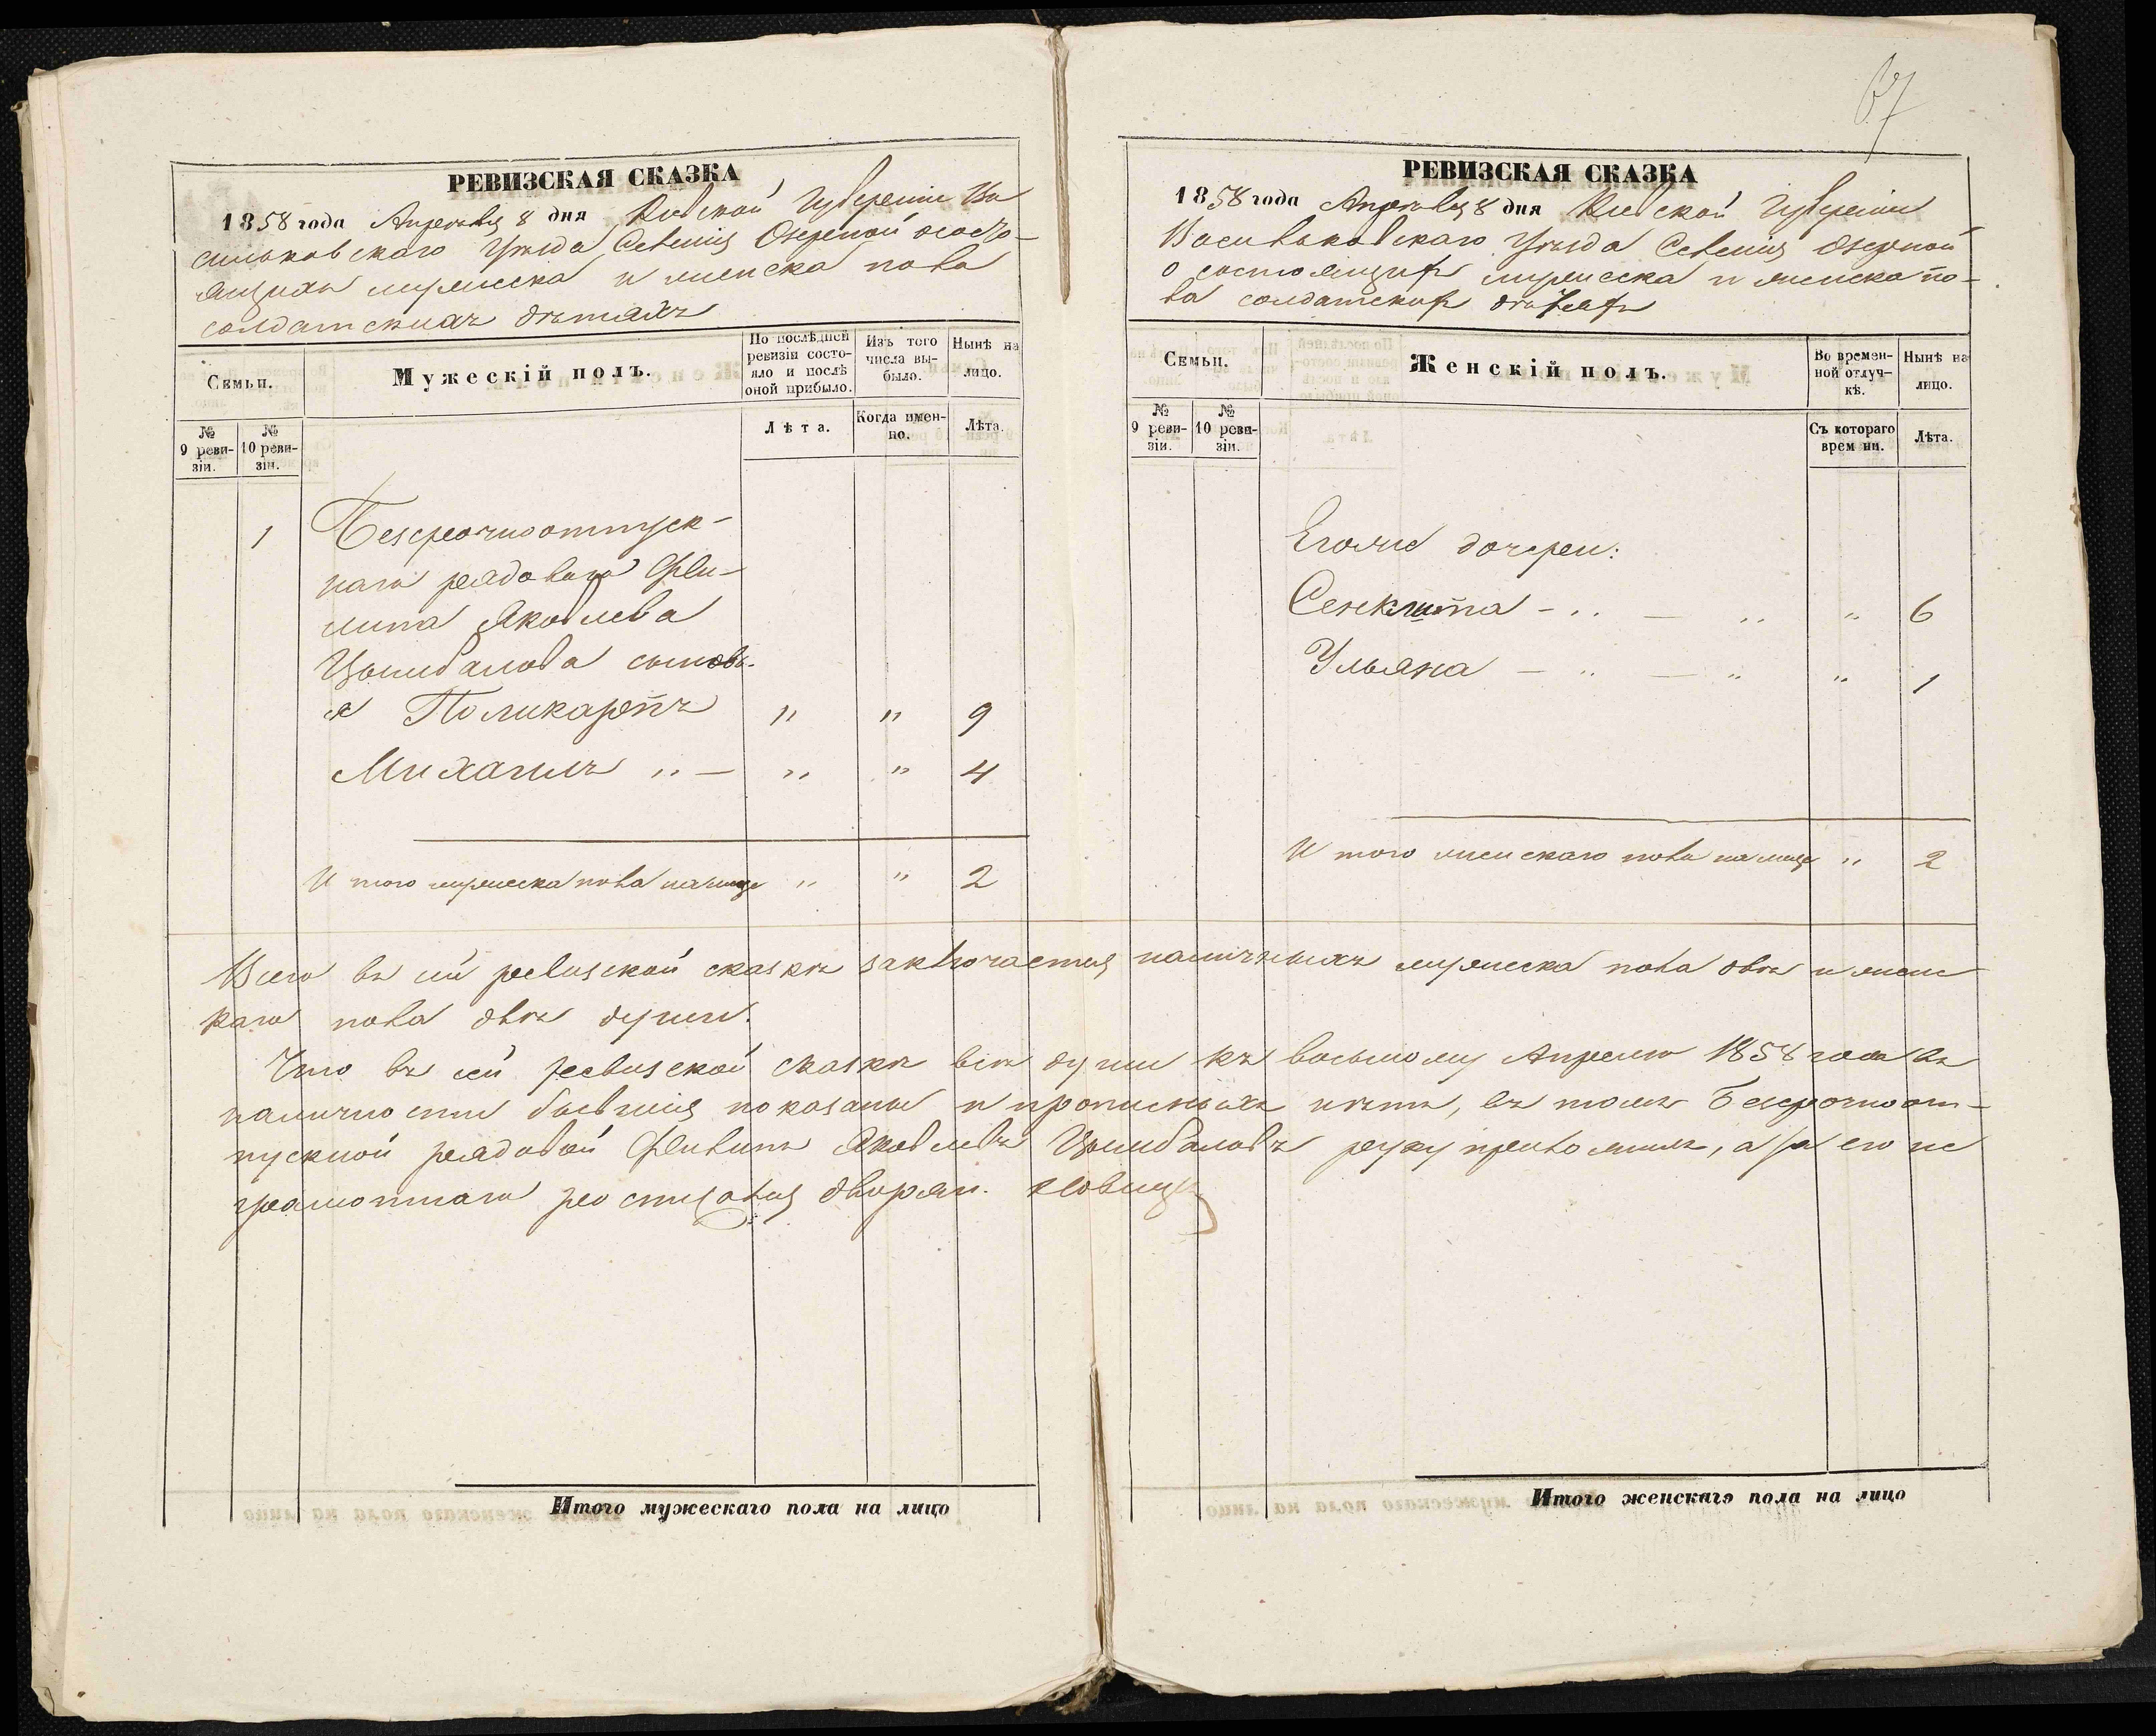 67
РЕВИЗСКАЯ СКАЗКА
1858 года Апреля 8 дня Киевской Губерніи Ва
сильковскаго Уѣзда Селенія Озерной о состо-
ящихъ мужеска и женска пола
солдатскихъ дѣтяхъ
Семьи.
Мужескій полъ.
По послѣдней ревизіи состо-
яло и послѣ оной прибыло.
Изъ того числа вы-
было.
Нынѣ на лицо.
№ 9 реви-
зіи.
№ 10 реви-
зіи.
Лѣта.
Когда имен-
но.
Лѣта.
1 Безсрочноотпуск-
наго рядоваго Фи-
липа Яковлева
Цымбалова сыновь-
я Поликарпъ " " 9
Михаилъ " — " " 4
Итого мужеска пола налицо " " 2
РЕВИЗСКАЯ СКАЗКА
1858 года Апреля 8 дня Киевской Губерніи
Васильковскаго Уѣзда Селенія Озерной
о состоящихъ мужеска и женска по-
ла солдатскихъ дѣтяхъ
Семьи.
Женскій полъ.
Во времен-
ной отлуч-
кѣ.
Нынѣ на лицо.
№ 9 реви-
зіи.
№ 10 реви-
зіи.
Съ котораго врем ни.
Лѣта.
Егоже дочери:
Сенклита - " — " " 6
Ульяна — " — " " 1
Итого женскаго пола на лицо " 2
Всего въ сей ревизской сказкѣ заключается наличныхъ мужеска пола двѣ и женс
каго пола двѣ души.
Что въ сей ревизской сказкѣ всѣ души къ восьмому Апрелю 1858 года въ
наличности бывшія показаны и прописныхъ нѣтъ, въ томъ Безсрочноот-
пускной рядовой Филипъ Яковлевъ Цымбаловъ руку приложилъ, а за его не
грамотнаго росписался дворян.
Итого мужескаго пола на лицо
Итого женскаго пола на лицо